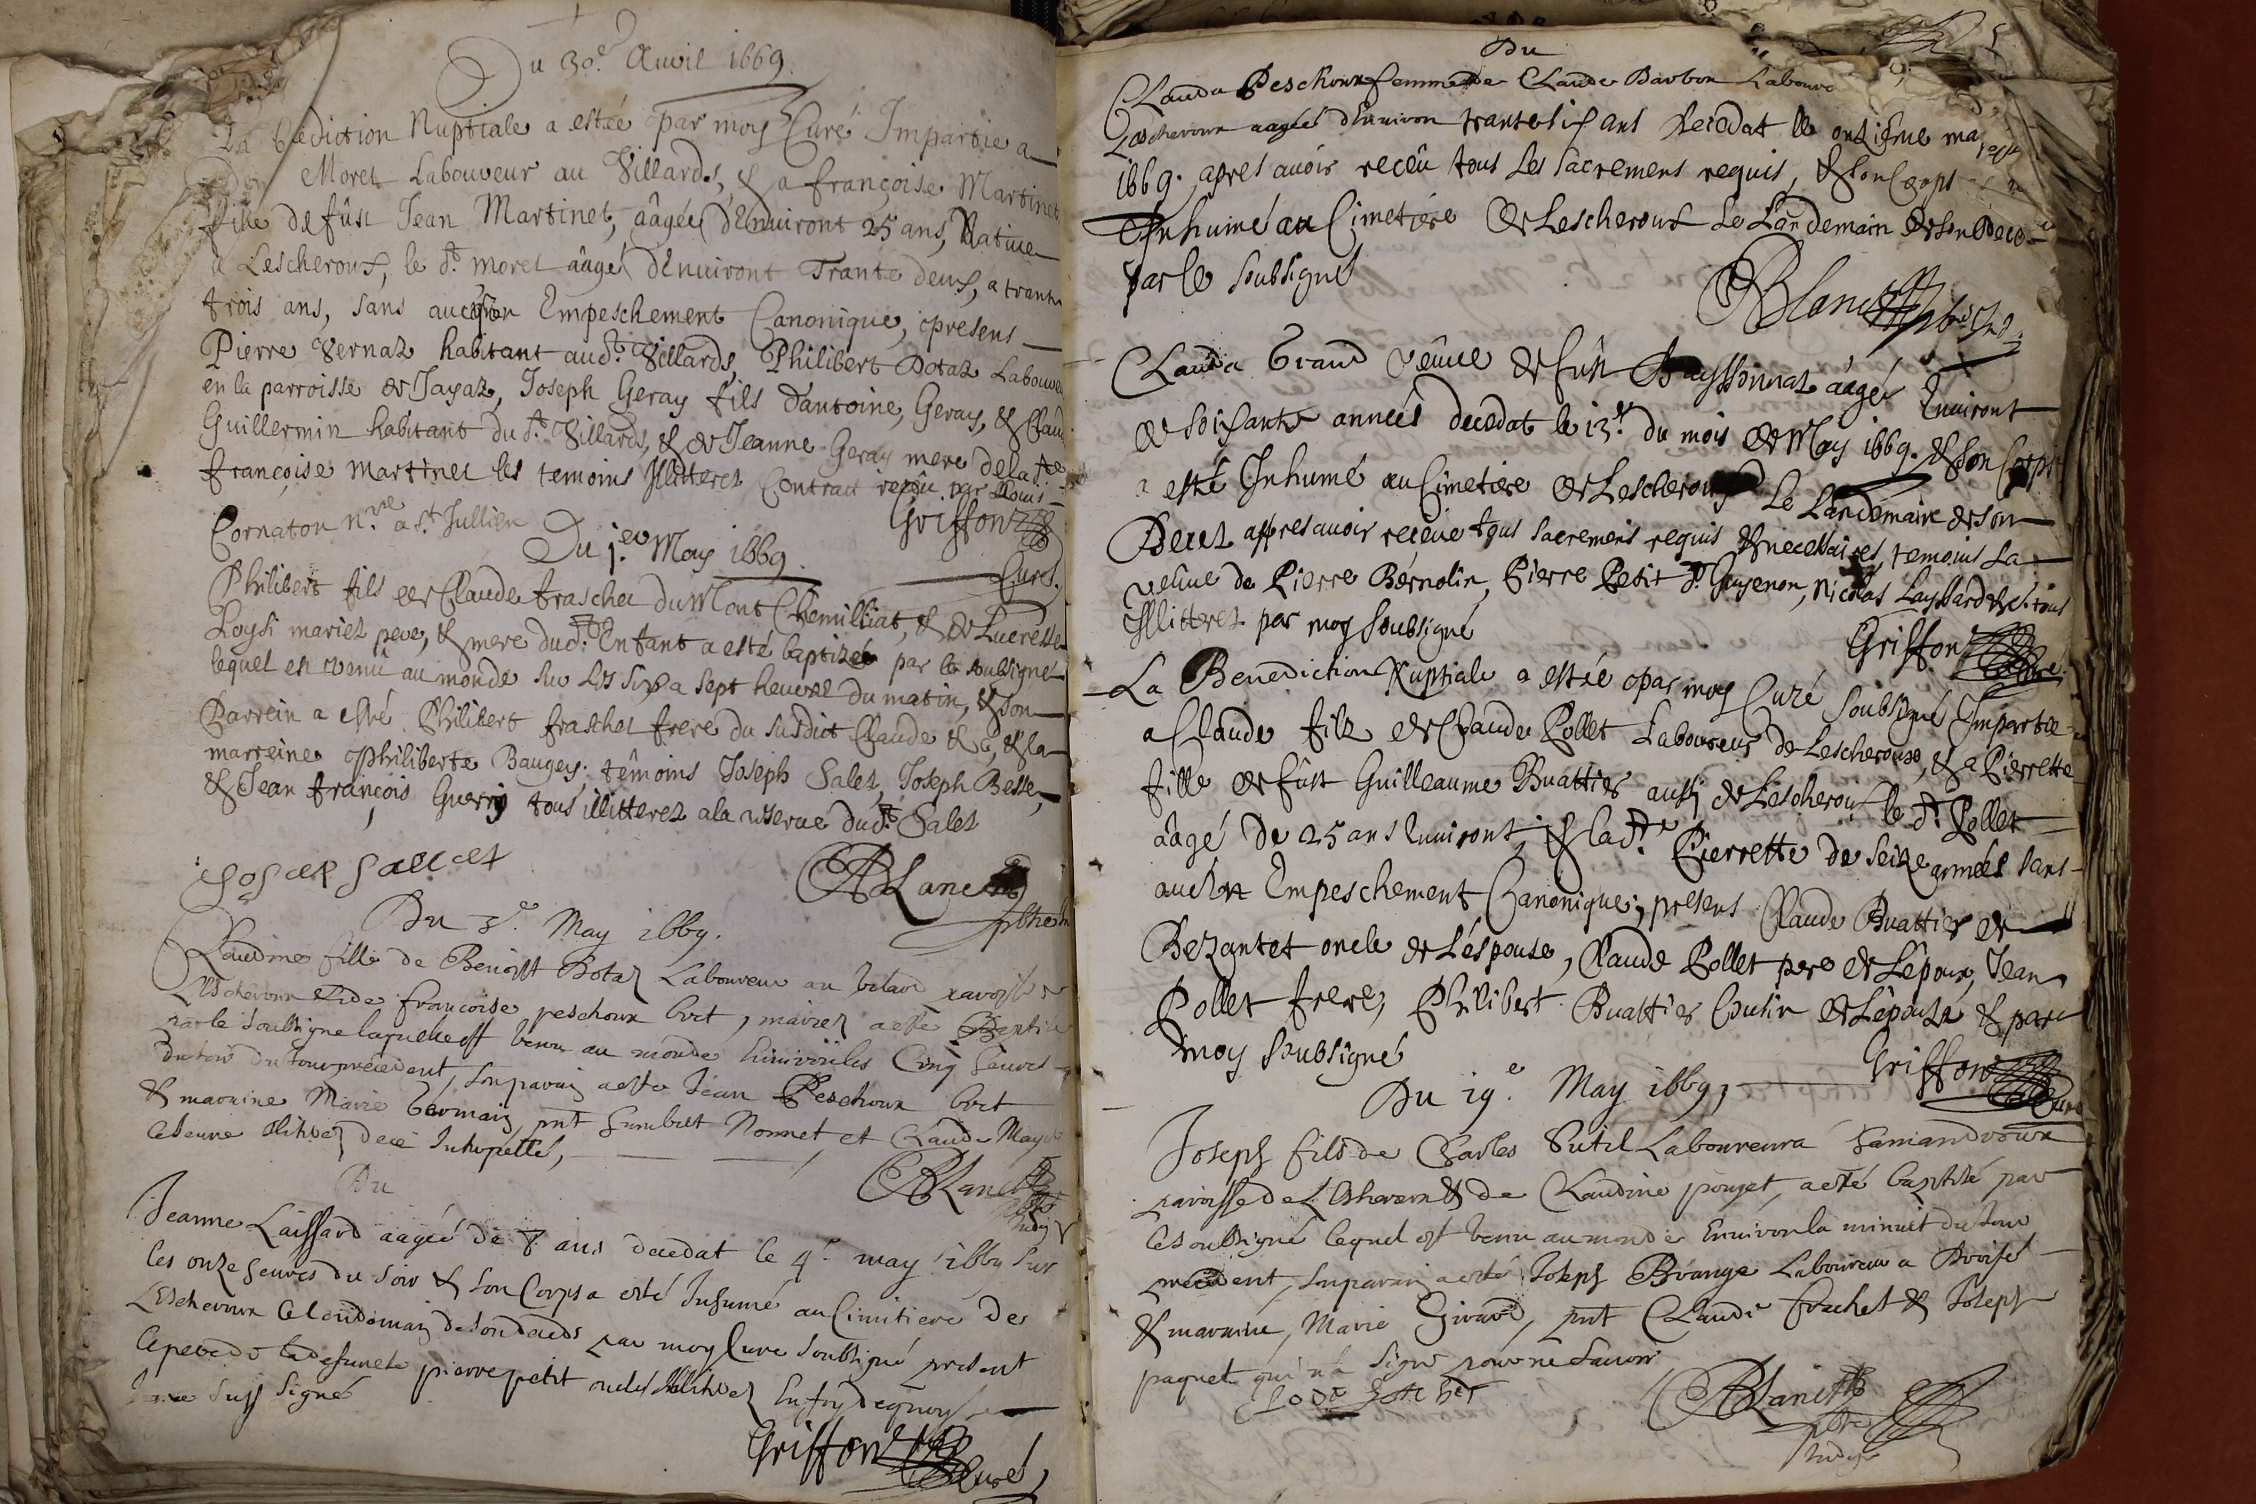 Du 30.e Avvil 1669.
La bñdiction Nuptiale a estée par moy Curé Impartie a
Moret Labouveur au Villards, & a françoise Martinet
fille de fûst Jean Martinet, âagée d'Enuiront 25 ans, Natiue
a Lescheroux, le d.t moret âagé d'Enuiront Trante deux, a trante
trois ans, sans aucun Empeschement Canonique, presens
Pierre Vernaz habitant aud.t Villards, Philibert Botaz Labouveu
en la parroisse de Jayaz, Joseph Geray fils d'antoine, Geray, & Claud
Guillermin habitant du d.t Villards, & de Jeanne Geray mere dela d.te
françoise Martinet les temoins Illitterez Contract reçeu par Louis
Cornaton n.re a S.t Jullien
Griffon
Curé.
Du j.er May 1669.
Philibert fils de Claude fraschet du Mont Chemilliat, & de Lucresse
Loysi mariez pere, & mere dud.t Enfant a esté baptizée par le soubsigné
lequel en venû au monde sur les six a sept heures du matin, & son
Parrein a esté Philibert fraschet frere du susdict Claude & c, & la
marreine Philiberte Baugey: têmoins Joseph Salet, Joseph Besse,
& Jean françois Guerry tous illitterez a la reserue dud.t Salet
Josept Sallet
Blanc
pbre
Du 3.e May 1669.
Claudine fille de Benoist Botaz Laboureur au vilard parroisse de
Lescheroux & de françoise peschoux bret, mariez a este Baptisé
par le soubsigne laquelle est venue au monde Environ les Cinq heures
du soir du jour precedent, son parain a este Jean Peschoux bret
& maraine Marie Germain, pnt humbert Nonnet et Claude May
le Jeune illiterez de ce Interpellé,
Blanc
Du
Jeanne Laissard aagée de 8. ans decedat le 4.e may 1669 sur
les onze heures du soir & son Corps a esté Inhumé au Cimitiere de
Lescheroux le lendemain de son deceds par moy Curé soubsigné present
le pere de la defuncte pierre petit oncle Illiterez En foy dequoy
me suis signé
Griffon
Curé
Du
Clauda Peschoux femme de Claude Barbon Laboure
Lescheroux aagée d'Enuiron trante six ans decedat le onzieme may
1669. apres auoir reçeu tous les sacremens requis, & son Corps
Inhumé au Cimetiere de Lescheroux le Landemain de son deces
par le soubsigné
Blanc
Clauda Grand veûue de fûst Bayssonnat âagée Enuiront
de soixante années decedat le 13.e du mois de May 1669. & son Corps
a esté Inhumé au Cimetiere de Lescheroux le Landemain de son
Decez appres auoir reçeue tous sacremens requis & necessaires, temoins la
veûue de Pierre Bernolin, Pierre Petit d.t Guyenon, Nicolas Layssard & c. tous
Illitterez par moy soubsigné
Griffon
Curé
La Benediction Nuptiale a estée par moy Curé soubsigné Impartie
a Claude filz de Claude Pollet Laboureur de Lescheroux, & a Pierrette
fille de fûst Guilleaume Buattier aussi de Lescheroux le d.t Pollet
âagé de 25 ans Enuiront, & la d.te Pierrette de seize années sans
aucun Empeschement Canonique, presens Claude Buattier de
Bezantet oncle de L'espouse, Claude Pollet pere de L'epoux, Jean
Pollet frere, Philibert Buattier Cousin de L'epouse & par
moy soubsigné
Griffon
Curé
Du 19.e May 1669,
Joseph fils de Charles Putil Laboureur a
paroisse de Lescheroux & de Claudine ponget, a esté baptisé par
le soubsigné lequel est venu au monde Enuiron la minuit du jour
precedent, son parain a esté Joseph Brange Laboureur a
& maraine, Marie Girard, pnt Claude frachet & Joseph
paquet qui n'a signé pour ne sauoir
Blanc
pbre